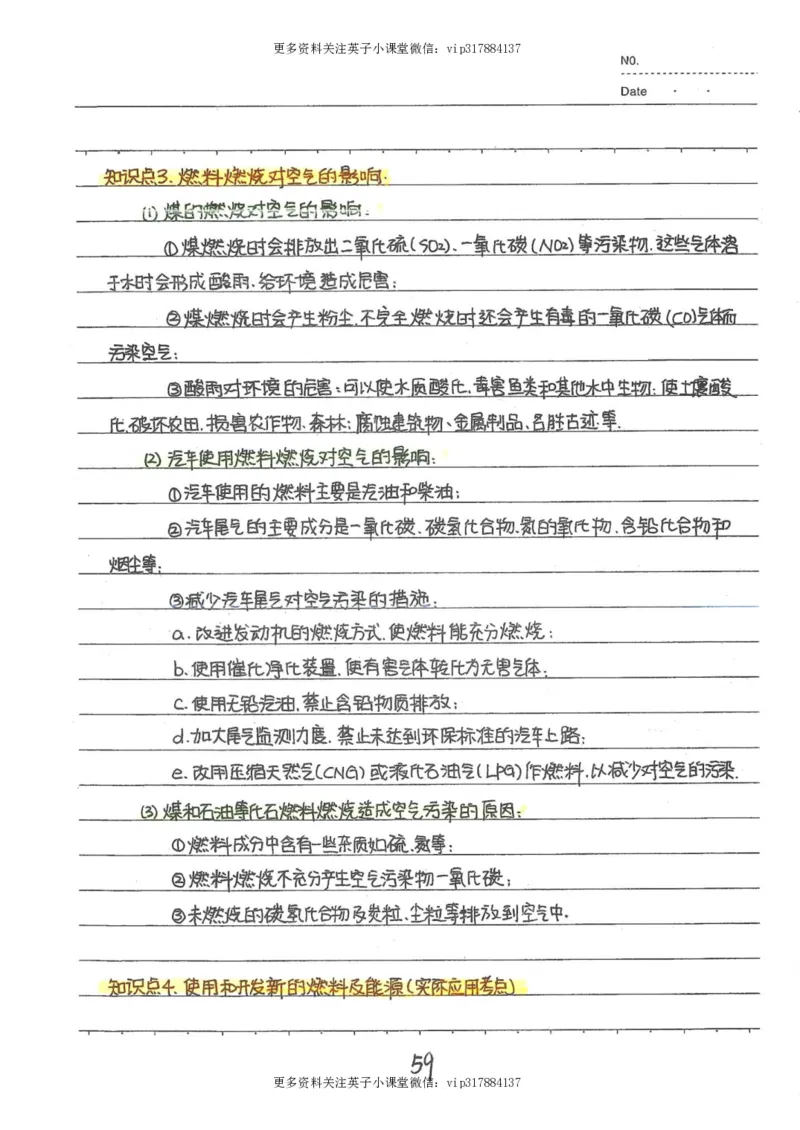 更多资料关注英子小课堂微信：vip317884137
NO.
Date · ·
知识点3.燃料燃烧对空气的影响.
(1) 煤的燃烧对空气的影响:
①煤燃烧时会排放出二氧化硫(SO2)、一氧化碳(NO2)等污染物.这些气体溶
于水时会形成酸雨.给环境造成危害;
②煤燃烧时会产生粉尘.不完全燃烧时还会产生有毒的一氧化碳(CO)气体而
污染空气;
③酸雨对环境的危害:可以使水质酸化.毒害鱼类和其他水中生物;使土壤酸
化.破坏农田.损害农作物、森林;腐蚀建筑物、金属制品、名胜古迹等.
(2) 汽车使用燃料燃烧对空气的影响:
①汽车使用的燃料主要是汽油和柴油;
②汽车尾气的主要成分是一氧化碳、碳氢化合物.氮的氧化物、含铅化合物和
烟尘等;
③减少汽车尾气对空气污染的措施:
a.改进发动机的燃烧方式.使燃料能充分燃烧;
b.使用催化净化装置.使有害气体转化为无害气体;
c.使用无铅汽油.禁止含铅物质排放;
d.加大尾气监测力度.禁止未达到环保标准的汽车上路;
e.改用压缩天然气(CNG)或液化石油气(LPG)作燃料.以减少对空气的污染.
(3) 煤和石油等化石燃料燃烧造成空气污染的原因:
①燃料成分中含有一些杂质如硫.氮等;
②燃料燃烧不充分产生空气污染物一氧化碳;
③未燃烧的碳氢化合物及炭粒、尘粒等排放到空气中.
知识点4.使用和开发新的燃料及能源(实际应用考点)
59
更多资料关注英子小课堂微信：vip317884137